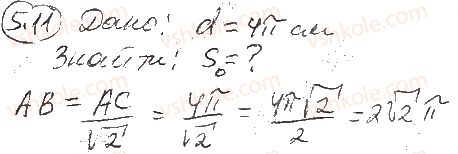 5.11 Дано: d = 4π см
Знайти: S₀ = ?
AB = AC/√2 = 4π/√2 = 4π√2/2 = 2√2 π